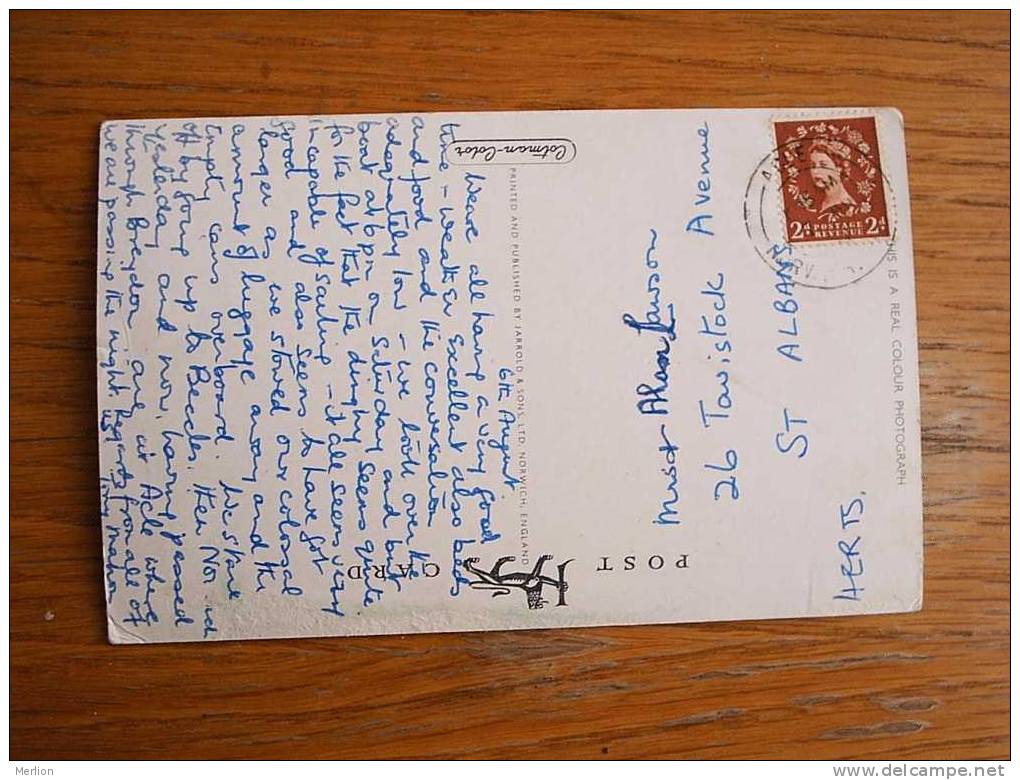 POST CARD
Cotman-Color
PRINTED AND PUBLISHED BY JARROLD & SONS, LTD. NORWICH, ENGLAND
THIS IS A REAL COLOUR PHOTOGRAPH
6th August.
We are all having a very good
time - weather excellent also beds
and food and the conversation
adequately low - we took over the
boat at 6pm on Saturday and but
for the fact that the dinghy seems quite
incapable of sailing - it all seems very
good and also seems to have got
larger as we stowed our colossal
amount of luggage away and the
empty cans overboard. We start
off by going up to Beccles. then Norwich
yesterday and now, having passed
through Breydon are at Acle where
we are passing the night. Regards from all of
us,
Miss Lawson
26 Tavistock Avenue
ST ALBANS
HERTS.
2d POSTAGE REVENUE 2d
Merlion
www.delcampe.net